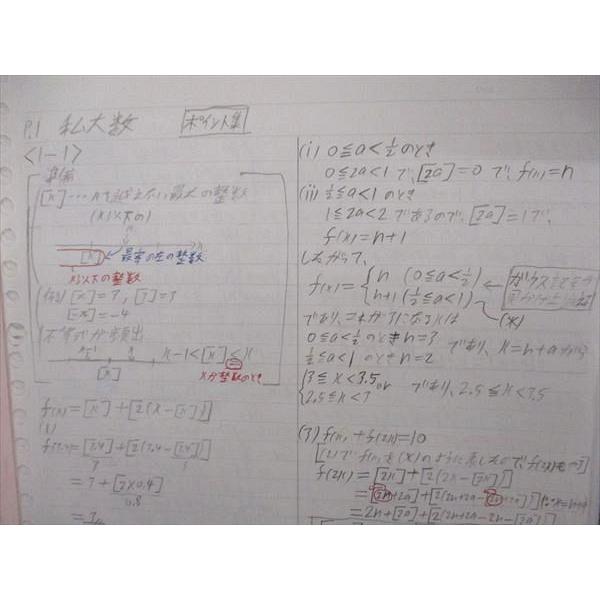 P.1 私大数 ポイント集
<1-1>
準備
[x]…xを超えない最大の整数
(x以下の)
[x] 最寄の左の整数
x以下の整数
(例) [π]=3, [3]=3
[-π]=-4
不等式が頻出
x-1<[x]≦x
[x] xが整数のとき
f(x)=[x]+[2(x-[x])]
(1)
f(3,4)=[3,4]+[2(3,4-[3,4])]
3 3
=3+[2×0.4]
0.8
=3
(i) 0≦a<1/2のとき
0≦2a<1で、[2a]=0で、f(x)=n
(ii) 1/2≦a<1のとき
1≦2a<2であるので、[2a]=1で、
f(x)=n+1
したがって、
f(x)={n (0≦a<1/2)
n+1 (1/2≦a<1) (※)
であり、これが3になるxは
0≦a<1/2のときn=3
1/2≦a<1のときn=2 であり、x=n+aから
{3≦x<3.5 or
2.5≦x<3 であり、2.5≦x<3.5
(3) f(x)+f(2x)=10
f(2x)=[2x]+[2(2x-[2x])]
=[2n+2a]+[2(2n+2a-
=2n+[2a]+[2(2n+2a-2n-[2a])]